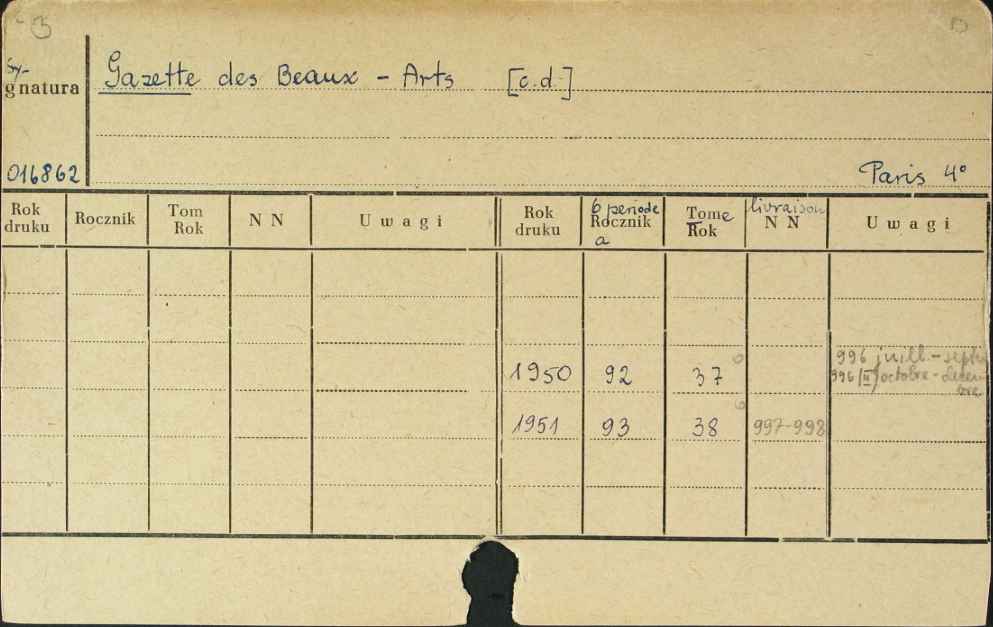 Sy-
gnatura
Gazette des Beaux - Arts [c.d.]
016862
Paris 4°
Rok druku Rocznik Tom Rok N N Uwagi Rok druku 6 periode Rocznik a Tome Rok livraison N N Uwagi
996 juill. - sept
1950 92 37 996 [II] octobre - décem
bre
1951 93 38 997-998